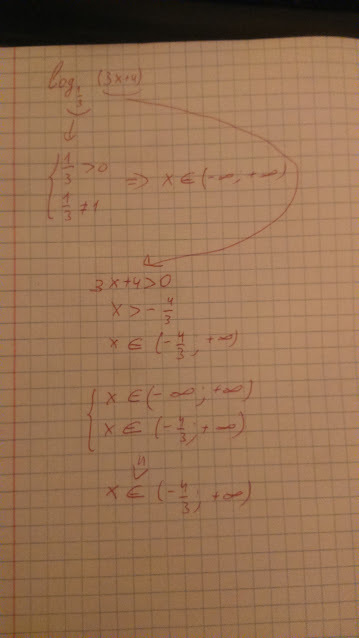 log 1/3 (3x+4)
{ 1/3 > 0
1/3 ≠ 1
=> x ∈ (-∞; +∞)
3x+4>0
x > - 4/3
x ∈ (- 4/3; +∞)
{ x ∈ (-∞; +∞)
x ∈ (- 4/3; +∞)
⇓
x ∈ (- 4/3; +∞)